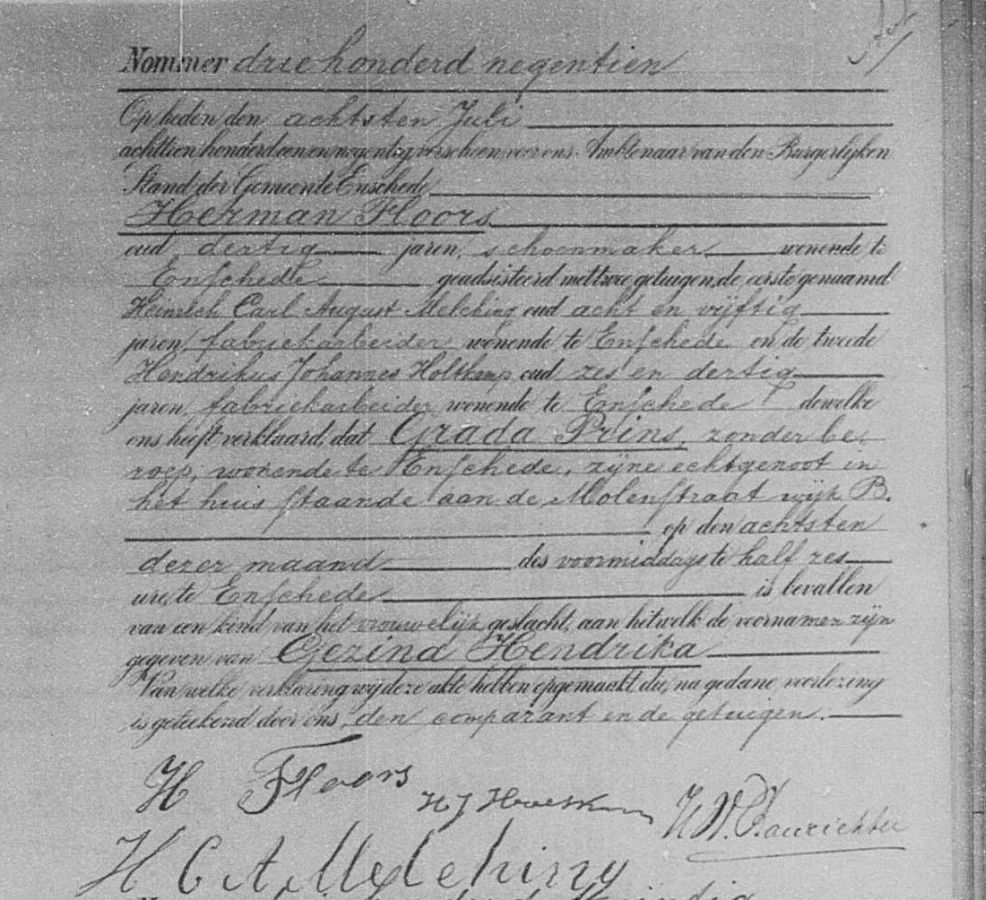 Nommer drie honderd negentien
Op heden den achtsten Juli
achttien honderd een en negentig verscheen voor ons Ambtenaar van den Burgerlijken
Stand der Gemeente Enschede
Herman Floors
oud dertig jaren, schoenmaker wonende te
Enschede geadsisteerd met twee getuigen, de eerste genaamd
Heinrich Carl August Melching oud acht en vijftig
jaren, fabriekarbeider wonende te Enschede en de tweede
Hendrikus Johannes Holtkamp, oud zes en dertig
jaren, fabriekarbeider wonende te Enschede dewelke
ons heeft verklaard, dat Grada Prins, zonder be.
roep, wonende te Enschede, zijne echtgenoot in
het huis staande aan de Molenstraat wijk B.
op den achtsten
dezer maand des voormiddags te half zes
ure, te Enschede is bevallen
van een kind van het vrouwelijk geslacht, aan hetwelk de voornamen zijn
gegeven van Gezina Hendrika
Van welke verklaring wij deze akte hebben opgemaakt, die, na gedane voorlezing
is geteekend door ons, den comparant en de getuigen.
H Floors
H J
H C A Melching